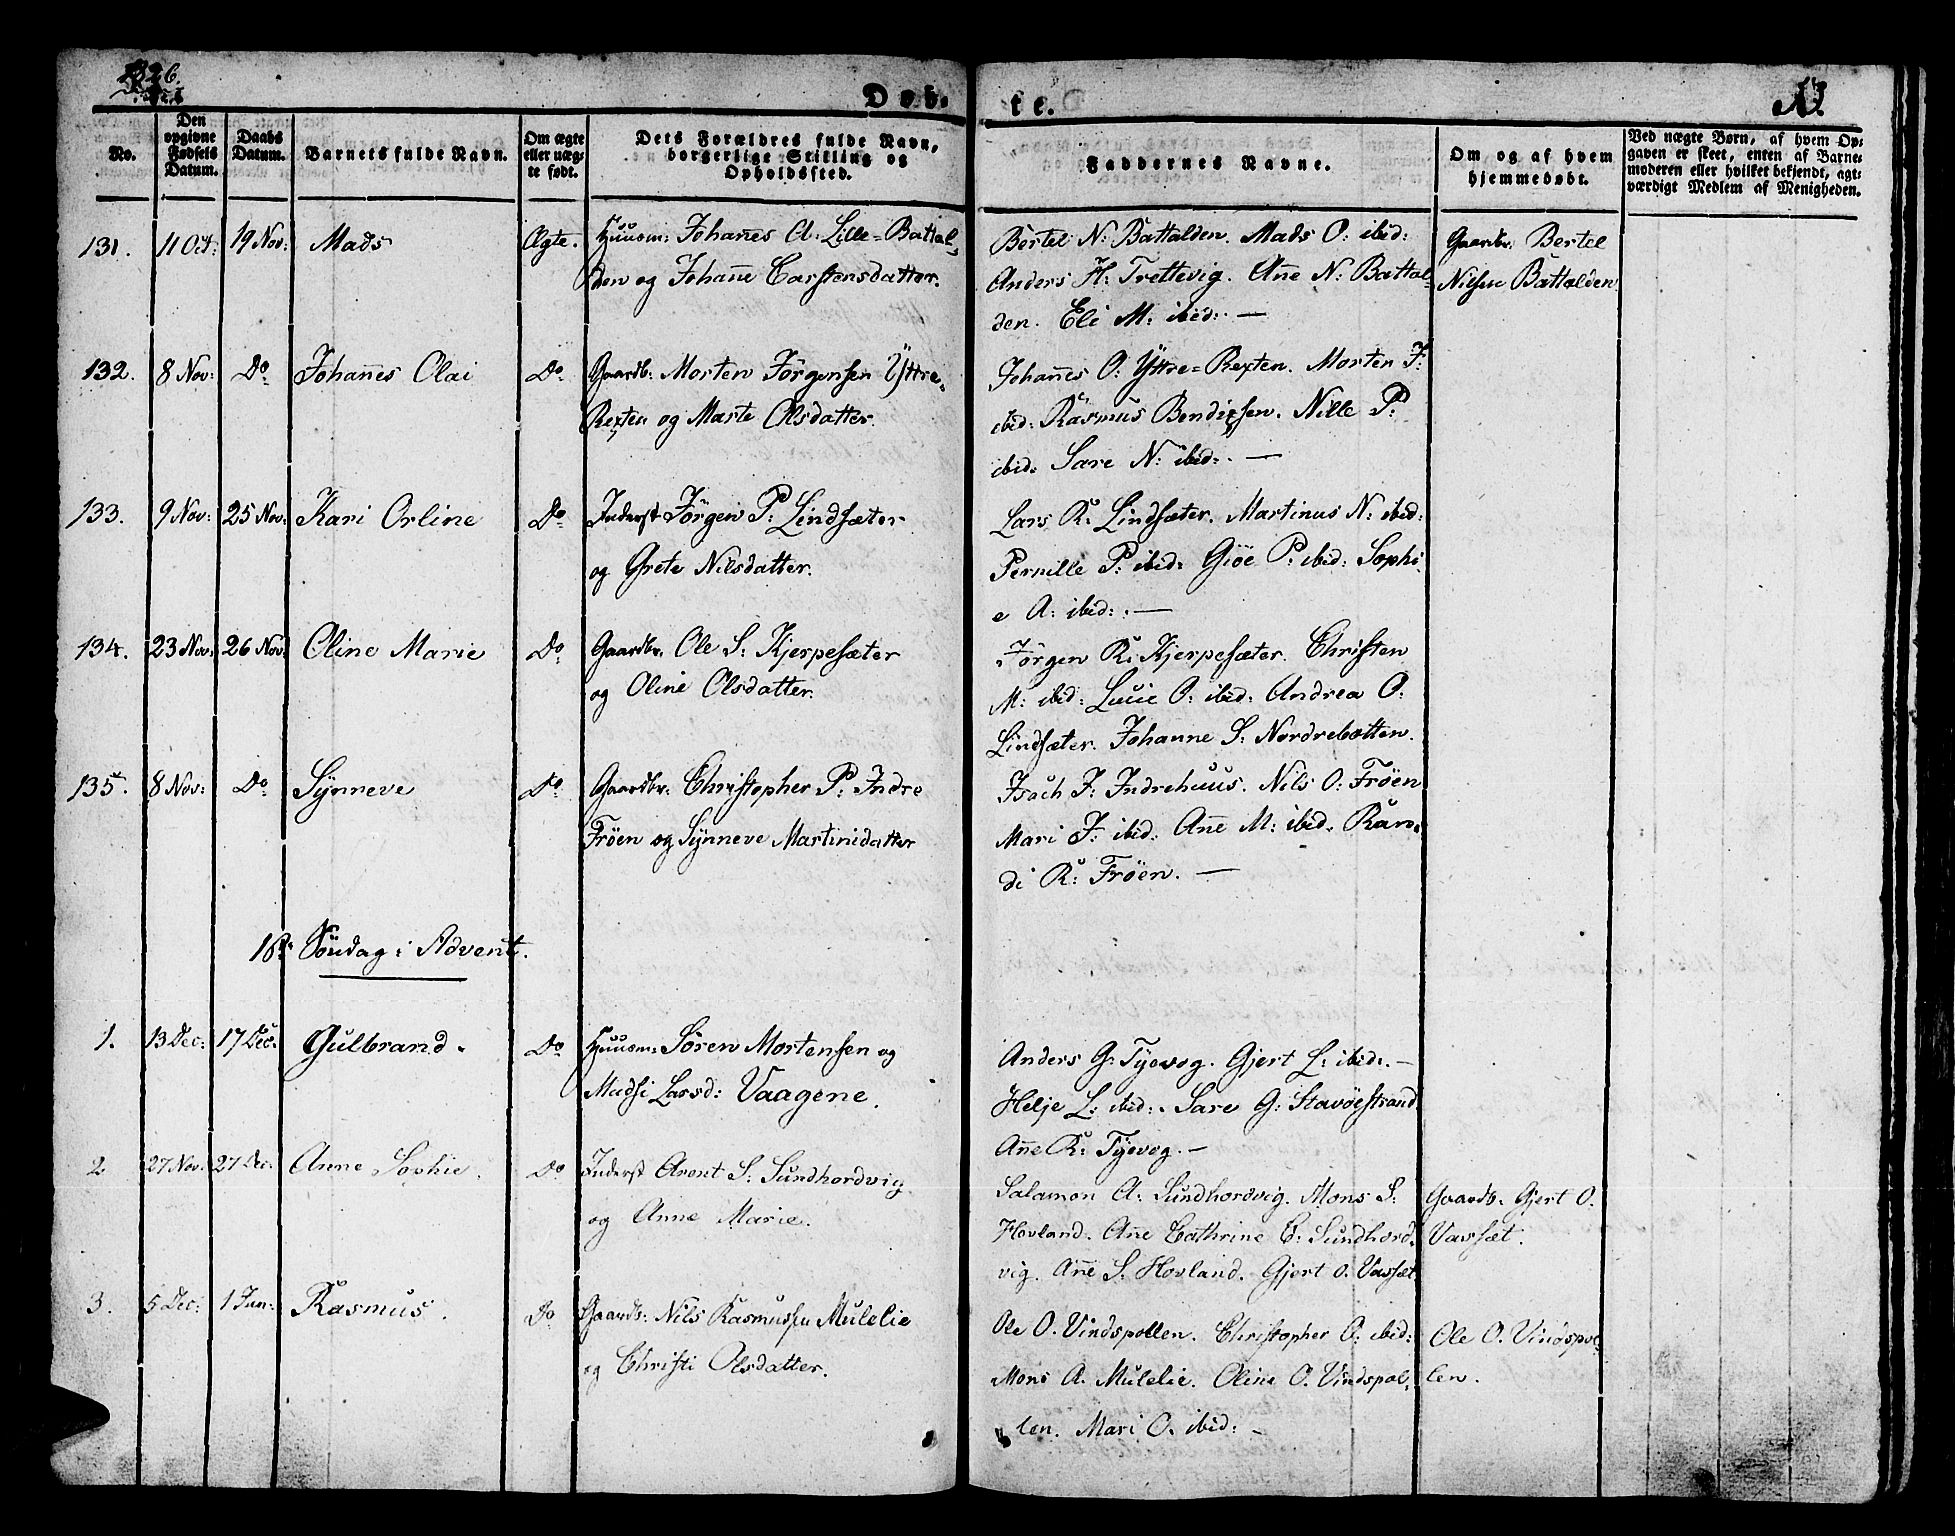 1826.
Døb-
te.
No.
Den opgivne Fødsels Datum.
Daabs Datum.
Barnets fulde Navn.
Om ægte eller uæg-te født.
Dets Forældres fulde Navn, borgerlige Stilling og Opholdssted.
Faddernes Navne.
Om og af hvem hjemmedøbt.
Ved uægte Børn, af hvem Op-gaven er skeet, enten af Barne-moderen eller hvilket bekjendt, agt-værdigt Medlem af Menigheden.
131. 11 Oct: 19 Nov: Mads Ægte. Huusm: Johañes A: Lille=Battal-
den og Johañe Carstensdatter.
Bertel N: Battalden. Mads O: ibid:
Anders H: Trettevig. Añe N: Battal-
den. Eli M: ibid: —
Gaardbr: Bertel
Nilsen Battalden.
132. 8 Nov: Do Johañes Olai Do Gaardb: Morten Jörgensen Yttre-
Rexten og Marte Olsdatter.
Johañes O: Yttre=Rexten. Morten J:
ibid: Rasmus Bendixsen. Nille P:
ibid: Sare N: ibid: —
133. 9 Nov: 25 Nov: Kari Orline Do Inderst Jörgen P: Lindsæter
og Grete Nilsdatter.
Lars R: Lindsæter. Martinus N: ibid:
Pernille P: ibid: Giöe P: ibid: Sophi-
e A: ibid: —
134. 23 Nov: 26 Nov: Oline Marie Do Gaardbr. Ole S: Kjerpesæter
og Oline Olsdatter.
Jörgen R: Kjerpesæter. Christen
M: ibid: Lucie O: ibid: Andrea O:
Lindsæter. Johanne S: Nordrebotten.
135. 8 Nov: Do Synneve Do Gaardbr: Christopher P: Indre
Fröen og Synneve Martinidatter
Isach J: Indrehuus. Nils O: Fröen
Mari J: ibid: Añe M: ibid. Ran-
di R: Fröen. —
Söndag i Advent.
1. 13 Dec: 17 Dec: Gulbrand. Do Huusm: Sören Mortensen og
Madsi Larsd: Vaagene.
Anders G: Tyevog. Gjert L: ibid: —
Helje L: ibid: Sare G: Stavöestrand
Añe R: Tyevog. —
2 27 Nov: 27 Dec: Anne Sophie. Do Inderst Arent S: Sundhordvig
og Anne Marie.
Salamon A: Sundhordvig. Mons S:
Hovland. Añe Cathrine C: Sundhord-
vig. Añe S. Hovland. Gjert O. Vasset
Gaardb. Gjert O.
Vasset.
3. 5 Dec: 1 Jan: Rasmus. Do Gaardb: Nils Rasmussen Mulelie
og Christi Olsdatter.
Ole O. Vindspollen. Christopher O: ibid:
Mons A. Mulelie. Oline O. Vindspol-
len. Mari O. ibid: —
Ole O. Vindspol-
len.